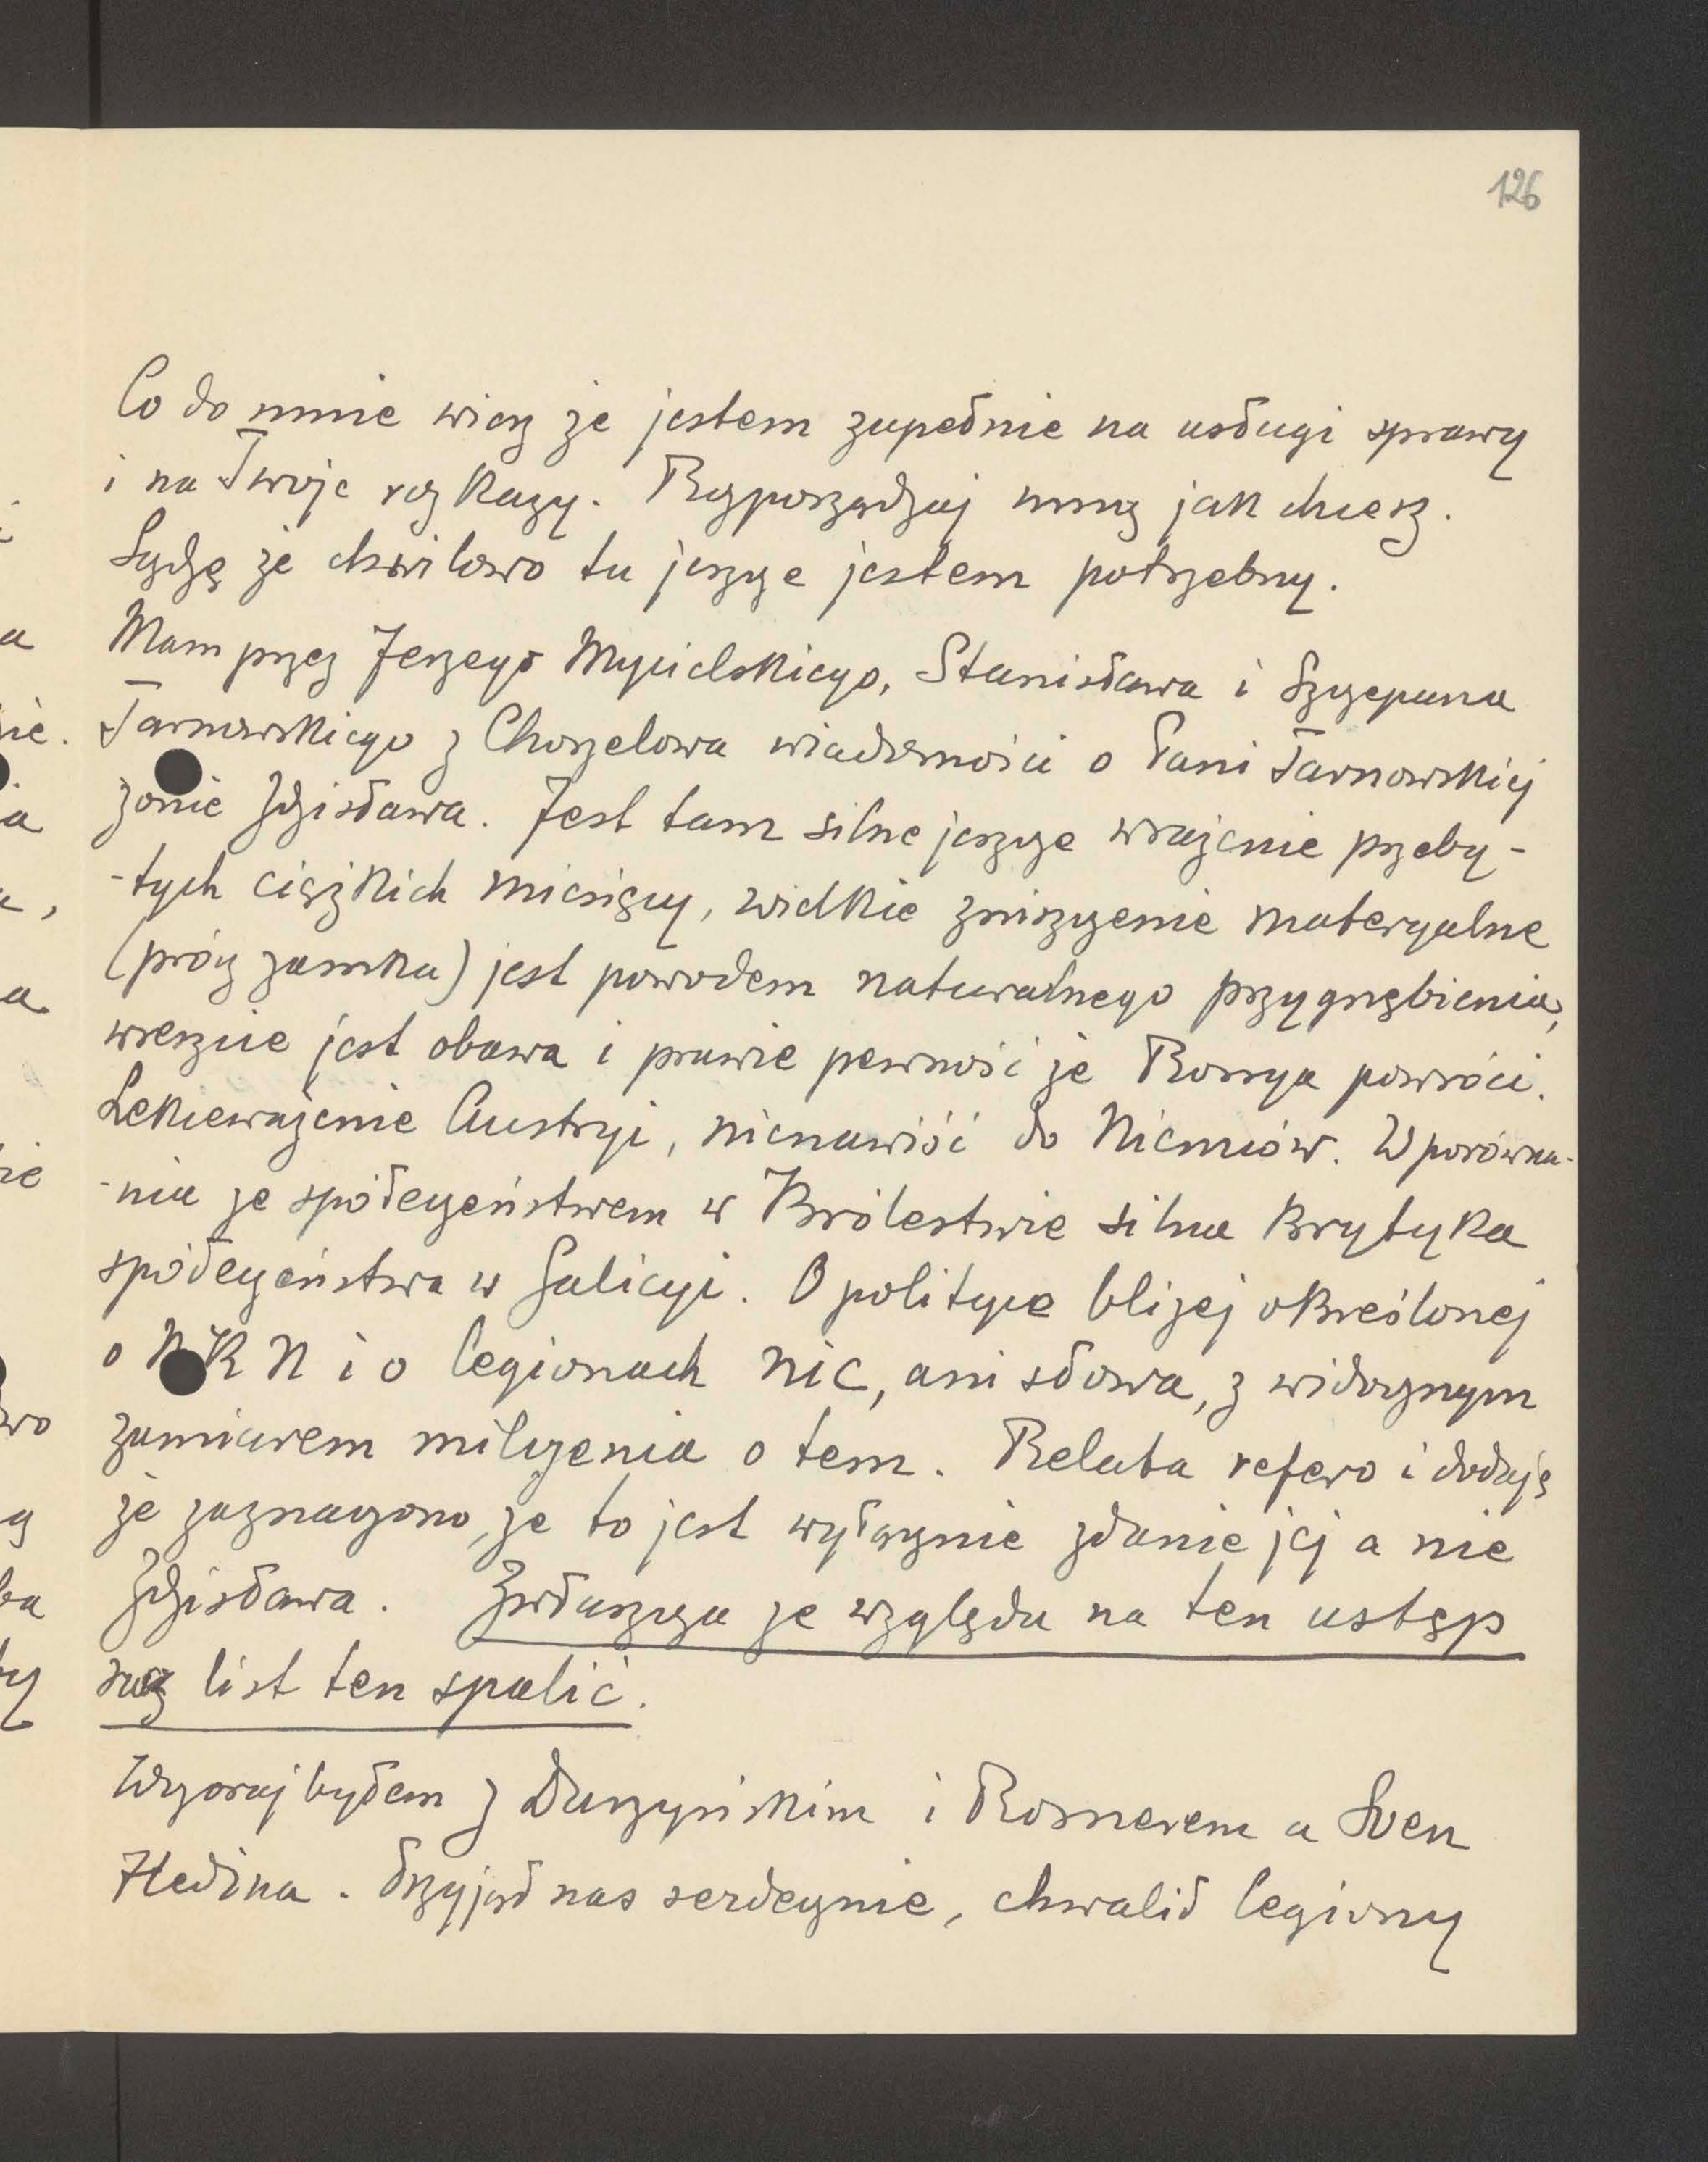 126
Co do mnie wiesz że jestem zupełnie na usługi sprawy
i na Twoje rozkazy. Rozporządzaj mną jak chcesz.
Sądzę że chwilowo tu jeszcze jestem potrzebny.
Mam przez Jerzego Mycielskiego, Stanisława i Szczepana
Tarnowskiego z Chorzelowa wiadomości o Pani Tarnowskiej
żonie Zdzisława. Jest tam silne jeszcze wrażenie przeby-
-tych ciężkich miesięcy, wielkie zniszczenie materyalne
(prócz zamku) jest powodem naturalnego przygnębienia,
wreszcie jest obawa i prawie pewność że Rossya powróci.
Lekceważenie Austryi, nienawiść do Niemców. W porówna-
-niu ze społeczeństwem w Królestwie silna krytyka
społeczeństwa w Galicyi. O polityce bliżej określonej
o N K N i o legionach nic, ani słowa, z widocznym
zamiarem milczenia o tem. Relata refero i dodaję
że zaznaczono, że to jest wyłącznie zdanie jej a nie
Zdzisława. Zwłaszcza ze względu na ten ustęp
list ten spalić.
Wczoraj byłem z Daszyńskim i Rosnerem u Sven
Hedina. Przyjął nas serdecznie, chwalił legiony